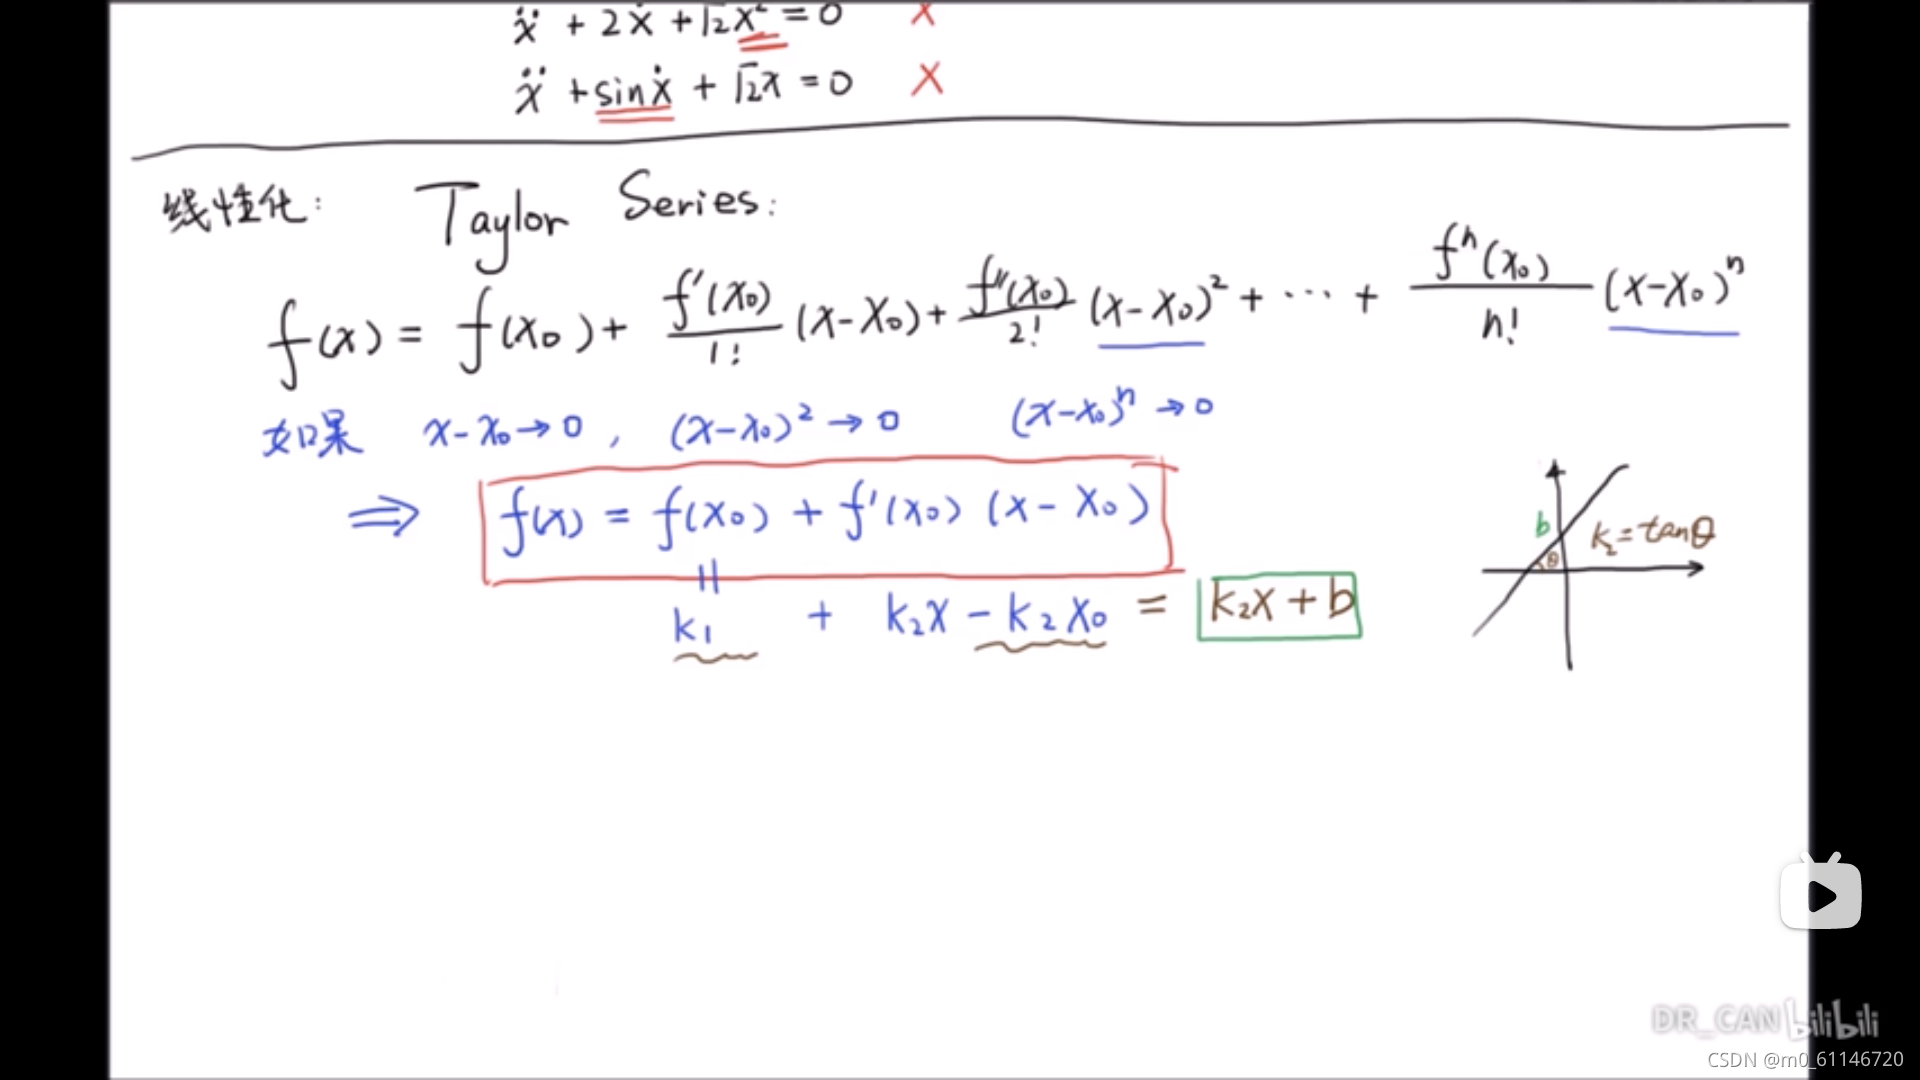 ẍ + 2ẋ + √2x² = 0 X
ẍ + sinẋ + √2x = 0 X
线性化: Taylor Series:
f(x) = f(x₀) + f'(x₀)/1! (x-x₀) + f''(x₀)/2! (x-x₀)² + ... + fⁿ(x₀)/n! (x-x₀)ⁿ
如果 x-x₀→0 , (x-x₀)²→0 (x-x₀)ⁿ→0
⇒ f(x) = f(x₀) + f'(x₀) (x-x₀)
b k₂=tanθ
θ
॥
k₁ + k₂x - k₂x₀ = k₂x + b
DR_CAN bilibili
CSDN @m0_61146720